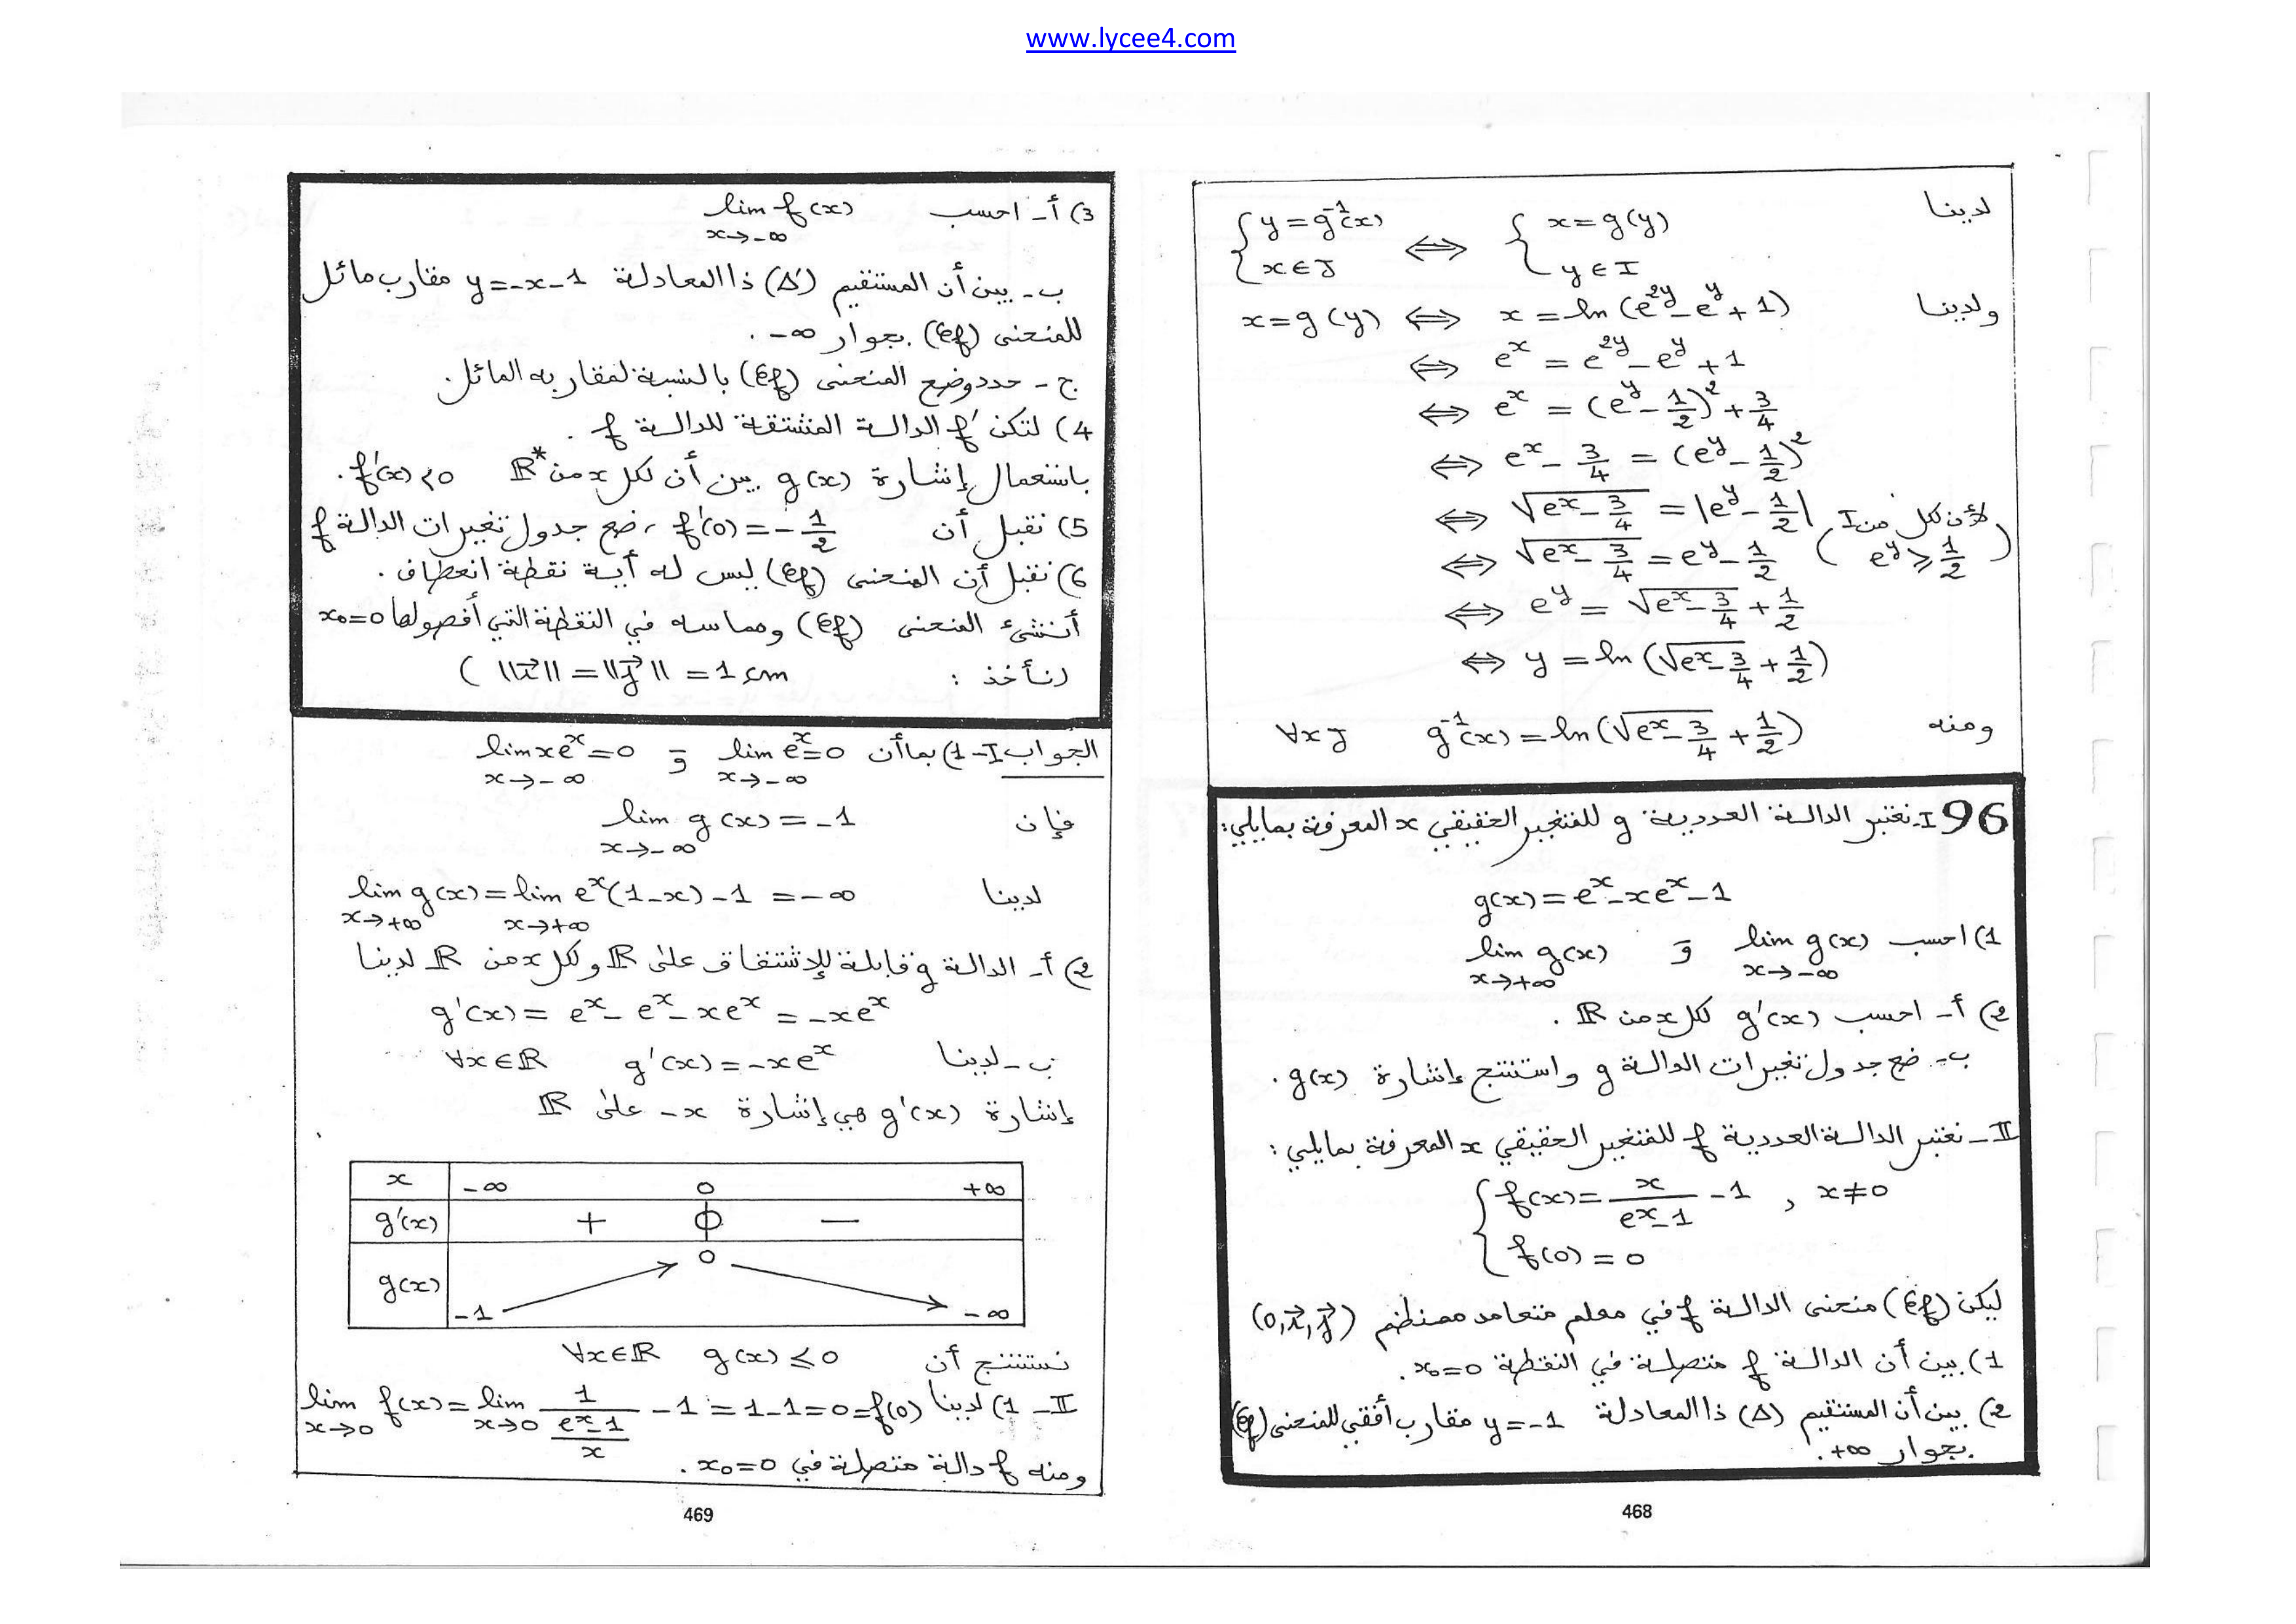 www.lycee4.com
لدينا { y = g⁻¹(x) , x ∈ J ⟺ { x = g(y) , y ∈ I
ولدينا x = g(y) ⟺ x = ln(e^2y - e^y + 1)
⟺ e^x = e^2y - e^y + 1
⟺ e^x = (e^y - 1/2)² + 3/4
⟺ e^x - 3/4 = (e^y - 1/2)²
⟺ √(e^x - 3/4) = |e^y - 1/2|
⟺ √(e^x - 3/4) = e^y - 1/2 (لأن لكل من I e^y ⩾ 1/2)
⟺ e^y = √(e^x - 3/4) + 1/2
⟺ y = ln(√(e^x - 3/4) + 1/2)
ومنه g⁻¹(x) = ln(√(e^x - 3/4) + 1/2) ∀x J
96 I- نعتبر الدالة العددية g للمتغير الحقيقي x المعرفة بمايلي:
g(x) = e^x - xe^x - 1
1) احسب lim g(x) x→-∞ و lim g(x) x→+∞
2) أ- احسب g'(x) لكل x من ℝ .
ب- ضع جدول تغيرات الدالة g واستنتج إشارة g(x) .
II- نعتبر الدالة العددية f للمتغير الحقيقي x المعرفة بمايلي :
{ f(x) = x/(e^x - 1) - 1 , x ≠ 0
f(0) = 0
ليكن (Cf) منحنى الدالة f في معلم متعامد ممنظم (0, i⃗, j⃗)
1) بين أن الدالة f متصلة في النقطة x₀=0 .
2) بين أن المستقيم (Δ) ذا المعادلة y = -1 مقارب أفقي للمنحنى (Cf)
بجوار +∞ .
468
3) أ- احسب lim f(x) x→-∞
ب- بين أن المستقيم (Δ') ذا المعادلة y = -x-1 مقارب مائل
للمنحنى (Cf) بجوار -∞ .
ج- حدد وضع المنحنى (Cf) بالنسبة لمقاربه المائل.
4) لتكن f' الدالة المشتقة للدالة f .
باستعمال إشارة g(x) بين أن لكل x من ℝ* f'(x) < 0 .
5) نقبل أن f'(0) = -1/2 ، ضع جدول تغيرات الدالة f
6) نقبل أن المنحنى (Cf) ليس له أية نقطة انعطاف .
أنشئ المنحنى (Cf) ومماسه في النقطة التي أفصولها x₀=0
(نأخذ : ||i⃗|| = ||j⃗|| = 1cm )
الجواب I-1) بما أن lim e^x = 0 x→-∞ و lim xe^x = 0 x→-∞
فإن lim g(x) = -1 x→-∞
لدينا lim g(x) x→+∞ = lim e^x(1-x) - 1 x→+∞ = -∞
2) أ- الدالة g قابلة للإشتقاق على ℝ ولكل x من ℝ لدينا
g'(x) = e^x - e^x - xe^x = -xe^x
ب- لدينا g'(x) = -xe^x ∀x ∈ ℝ
إشارة g'(x) هي إشارة -x على ℝ
x -∞ 0 +∞
g'(x) + 0 -
g(x) -1 0 -∞
نستنتج أن g(x) ⩽ 0 ∀x ∈ ℝ
II-1) لدينا lim f(x) x→0 = lim 1/((e^x - 1)/x) - 1 x→0 = 1-1 = 0 = f(0)
ومنه f دالة متصلة في x₀=0 .
469